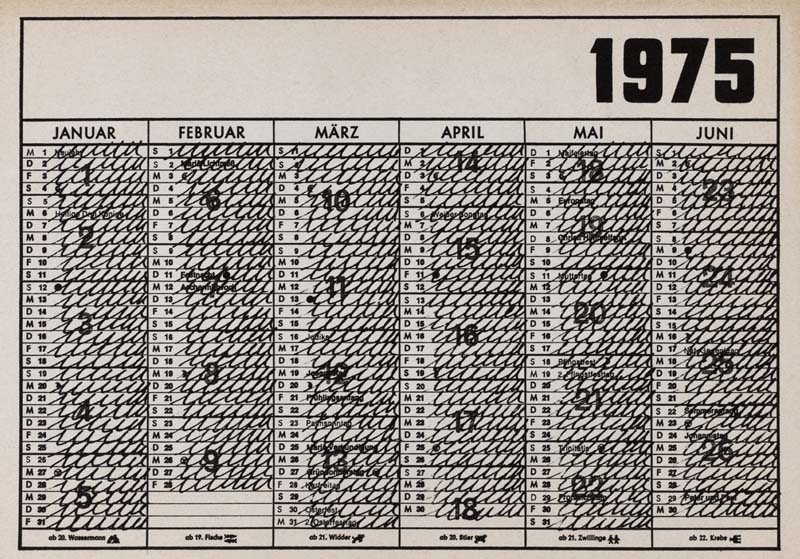 1975
JANUAR
M 1 Neujahr
D 2
F 3
S 4
S 5
M 6 Heilige Drei Könige
D 7
M 8
D 9
F 10
S 11
S 12
M 13
D 14
M 15
D 16
F 17
S 18
S 19
M 20
D 21
M 22
D 23
F 24
S 25
S 26
M 27
D 28
M 29
D 30
F 31
1
2
3
4
5
ab 20. Wassermann
FEBRUAR
S 1
S 2 Mariä Lichtmeß
M 3
D 4
M 5
D 6
F 7
S 8
S 9
M 10
D 11 Fastnacht
M 12 Aschermittwoch
D 13
F 14
S 15
S 16
M 17
D 18
M 19
D 20
F 21
S 22
S 23
M 24
D 25
M 26
D 27
F 28
6
8
9
ab 19. Fische
MÄRZ
S 1
S 2
M 3
D 4
M 5
D 6
F 7
S 8
S 9
M 10
D 11
M 12
D 13
F 14
S 15
S 16 Judika
M 17
D 18
M 19 Josefstag
D 20
F 21 Frühlingsanfang
S 22
S 23 Palmsonntag
M 24
D 25 Mariä Verkündigung
M 26
D 27 Gründonnerstag
F 28 Karfreitag
S 29
S 30 Osterfest
M 31 2. Osterfesttag
10
11
12
13
ab 21. Widder
APRIL
D 1
M 2
D 3
F 4
S 5
S 6 Weißer Sonntag
M 7
D 8
M 9
D 10
F 11
S 12
S 13
M 14
D 15
M 16
D 17
F 18
S 19
S 20
M 21
D 22
M 23
D 24
F 25
S 26
S 27
M 28
D 29
M 30
14
15
16
17
18
ab 20. Stier
MAI
D 1 Maifeiertag
F 2
S 3
S 4
M 5 Europatag
D 6
M 7
D 8 Christi Himmelfahrt
F 9
S 10
S 11 Muttertag
M 12
D 13
M 14
D 15
F 16
S 17
S 18 Pfingstfest
M 19 2. Pfingstfesttag
D 20
M 21
D 22
F 23
S 24
S 25 Trinitatis
M 26
D 27
M 28
D 29 Fronleichnam
F 30
S 31
18
19
20
21
22
ab 21. Zwillinge
JUNI
S 1
M 2
D 3
M 4
D 5
F 6
S 7
S 8
M 9
D 10
M 11
D 12
F 13
S 14
S 15
M 16
D 17
M 18
D 19
F 20
S 21
S 22 Sommeranfang
M 23
D 24 Johannistag
M 25
D 26
F 27
S 28
S 29 Peter und Paul
M 30
23
24
25
26
ab 22. Krebs